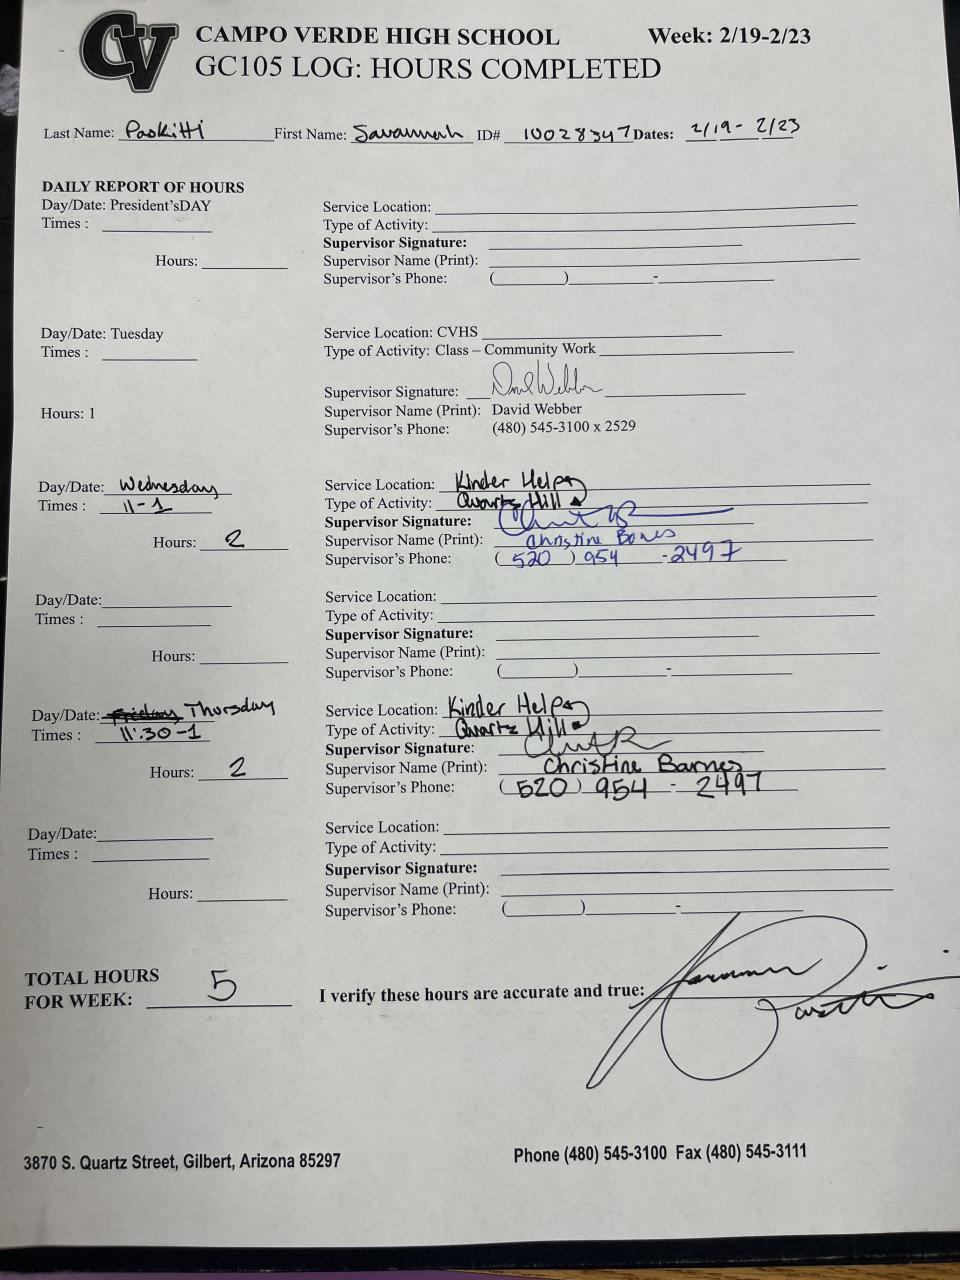 CV
CAMPO VERDE HIGH SCHOOL Week: 2/19-2/23
GC105 LOG: HOURS COMPLETED
Last Name: Paskitti First Name: Savannah ID# 10028347 Dates: 2/19 - 2/23
DAILY REPORT OF HOURS
Day/Date: President'sDAY Service Location:
Times : Type of Activity:
Supervisor Signature:
Hours: Supervisor Name (Print):
Supervisor's Phone: ( ) -
Day/Date: Tuesday Service Location: CVHS
Times : Type of Activity: Class – Community Work
Supervisor Signature: David Webber
Hours: 1 Supervisor Name (Print): David Webber
Supervisor's Phone: (480) 545-3100 x 2529
Day/Date: Wednesday Service Location: Kinder Helper
Times : 11-1 Type of Activity: Quartz Hill
Supervisor Signature:
Hours: 2 Supervisor Name (Print): Christine Barnes
Supervisor's Phone: (520) 954 - 2497
Day/Date: Service Location:
Times : Type of Activity:
Supervisor Signature:
Hours: Supervisor Name (Print):
Supervisor's Phone: ( ) -
Day/Date: Friday Thursday Service Location: Kinder Helper
Times : 11:30-1 Type of Activity: Quartz Hill
Supervisor Signature:
Hours: 2 Supervisor Name (Print): Christine Barnes
Supervisor's Phone: (520) 954 - 2497
Day/Date: Service Location:
Times : Type of Activity:
Supervisor Signature:
Hours: Supervisor Name (Print):
Supervisor's Phone: ( ) -
TOTAL HOURS
FOR WEEK: 5 I verify these hours are accurate and true:
3870 S. Quartz Street, Gilbert, Arizona 85297 Phone (480) 545-3100 Fax (480) 545-3111